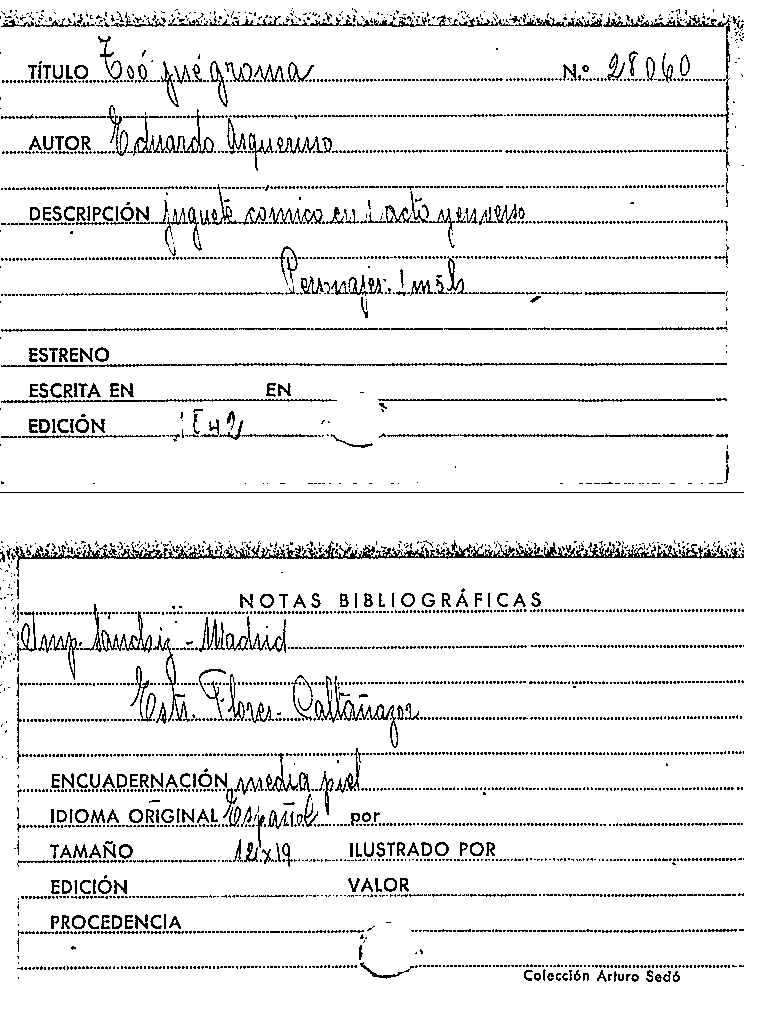 TÍTULO Too juégroma N.º 28060
AUTOR Eduardo Asquerino
DESCRIPCIÓN juguete cómico en 1 acto y en verso
Personajes: 1m5h
ESTRENO
ESCRITA EN EN
EDICIÓN 1842
NOTAS BIBLIOGRÁFICAS
Imp. Sánchiz - Madrid
Estr. Flores - Caltañazor
ENCUADERNACIÓN media piel
IDIOMA ORIGINAL Español por
TAMAÑO 12x19 ILUSTRADO POR
EDICIÓN VALOR
PROCEDENCIA
Colección Arturo Sedó